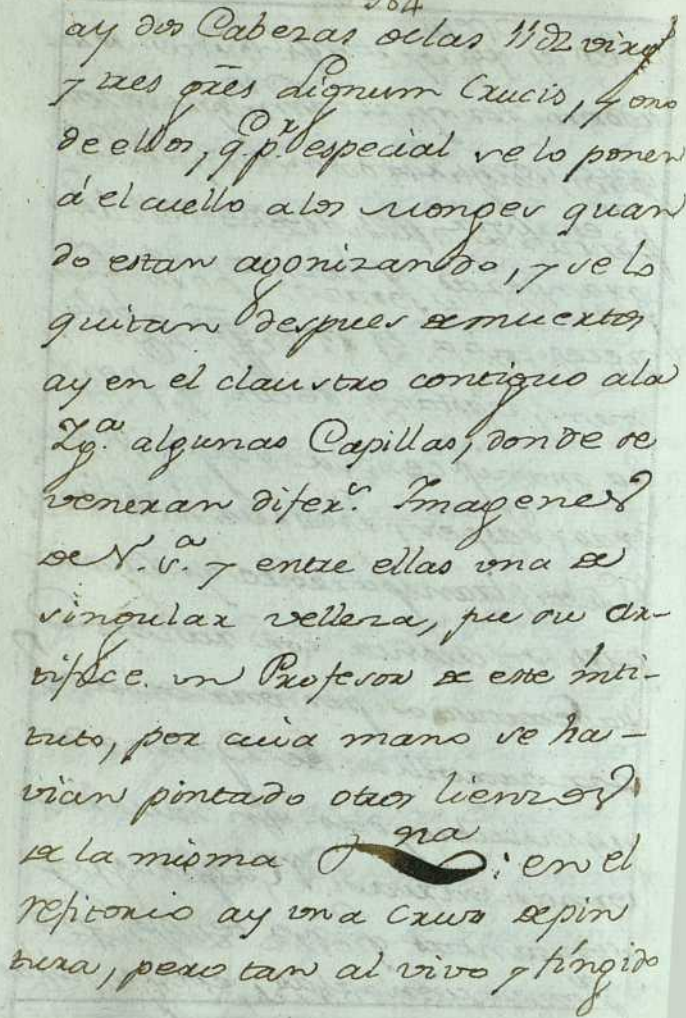 ay dos Cabezas delas 11 D virg.s
y tres g̃res Lignum Crucis, y uno
de ellos, q.e p.r especial se lo ponen
á el cuello a los Monges quan
do estan agonizando, y se lo
quitan despues de muertos
ay en el claustro contiguo ala
Yg.a algunas Capillas, donde se
veneran difer.s Imagenes
de N. S.a y entre ellas una de
singular velleza, fue su Ar-
tifice un Profesor de este insti-
tuto, por cuia mano se ha-
vian pintado otros lienzos
de la misma : en el
refitorio ay una Cruz de pin
tura, pero tan al vivo y fingido